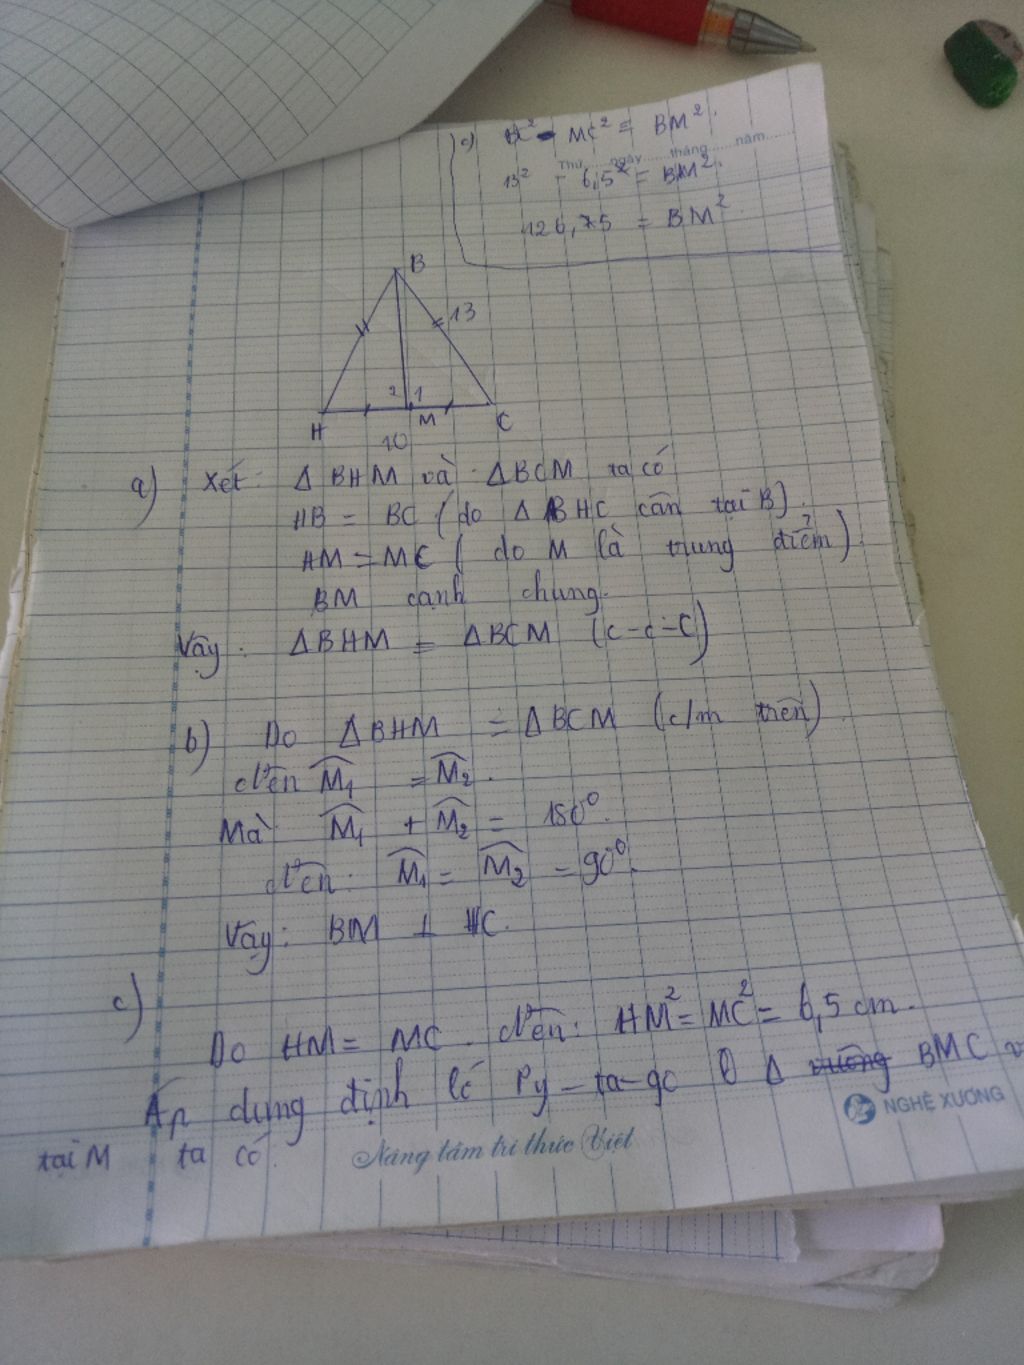 c) BC² - MC² = BM².
Thứ......ngày......tháng......năm......
13² - 6,5² = BM².
126,75 = BM²
B
13
2 1
H M C
10
a) Xét: Δ BHM và ΔBCM ta có
HB = BC (do Δ BHC cân tại B).
HM = MC ( do M là trung điểm).
BM cạnh chung.
Vậy: ΔBHM = ΔBCM (c-c-c)
b) Do ΔBHM = ΔBCM (c/m trên).
Nên M̂₁ = M̂₂.
Mà M̂₁ + M̂₂ = 180⁰.
Nên: M̂₁ = M̂₂ = 90⁰.
Vậy: BM ⊥ HC.
c)
Do HM = MC. Nên: HM² = MC² = 6,5 cm.
Áp dụng định lí Py-ta-go Δ vuông BMC v
NGHỆ XƯƠNG
tại M ta có:
Nâng tầm tri thức Việt